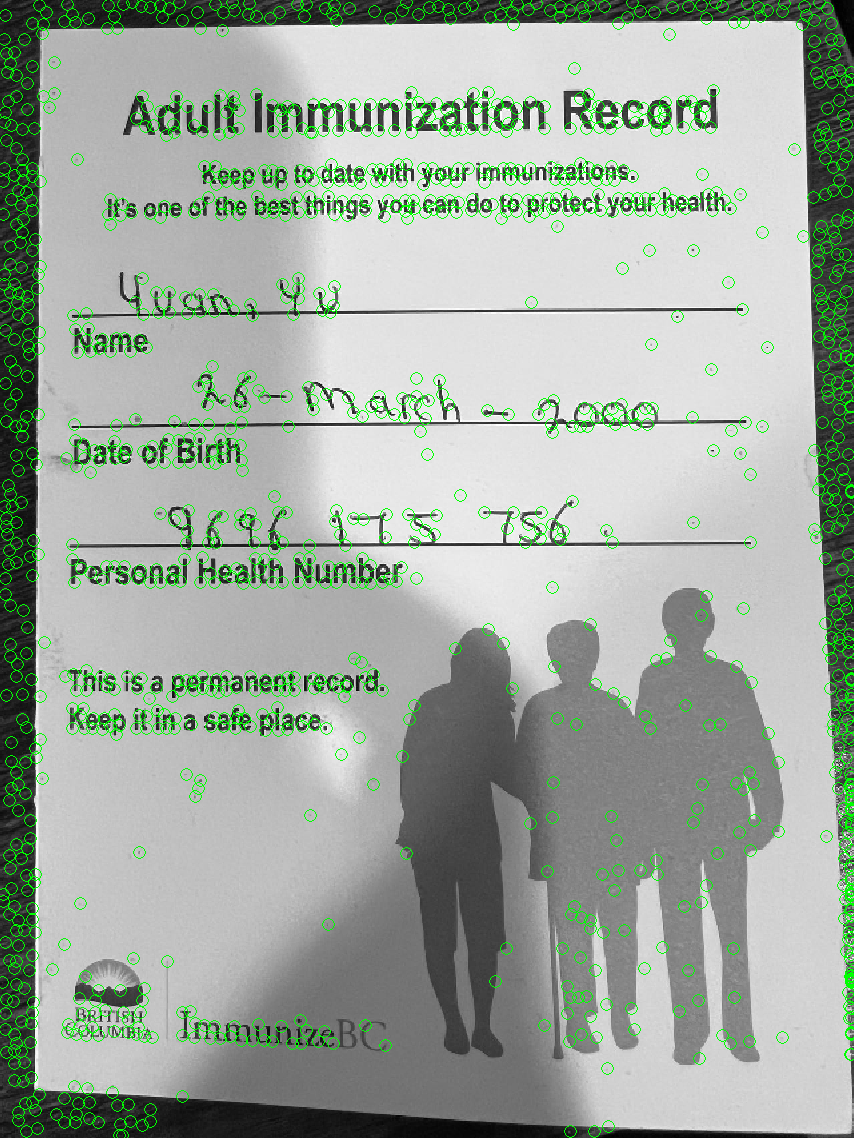 Adult Immunization Record
Keep up to date with your immunizations.
It's one of the best things you can do to protect your health.
Yuan, Yu
Name
26 - March - 2000
Date of Birth
9696 175 756
Personal Health Number
This is a permanent record.
Keep it in a safe place.
BRITISH
COLUMBIA
ImmunizeBC